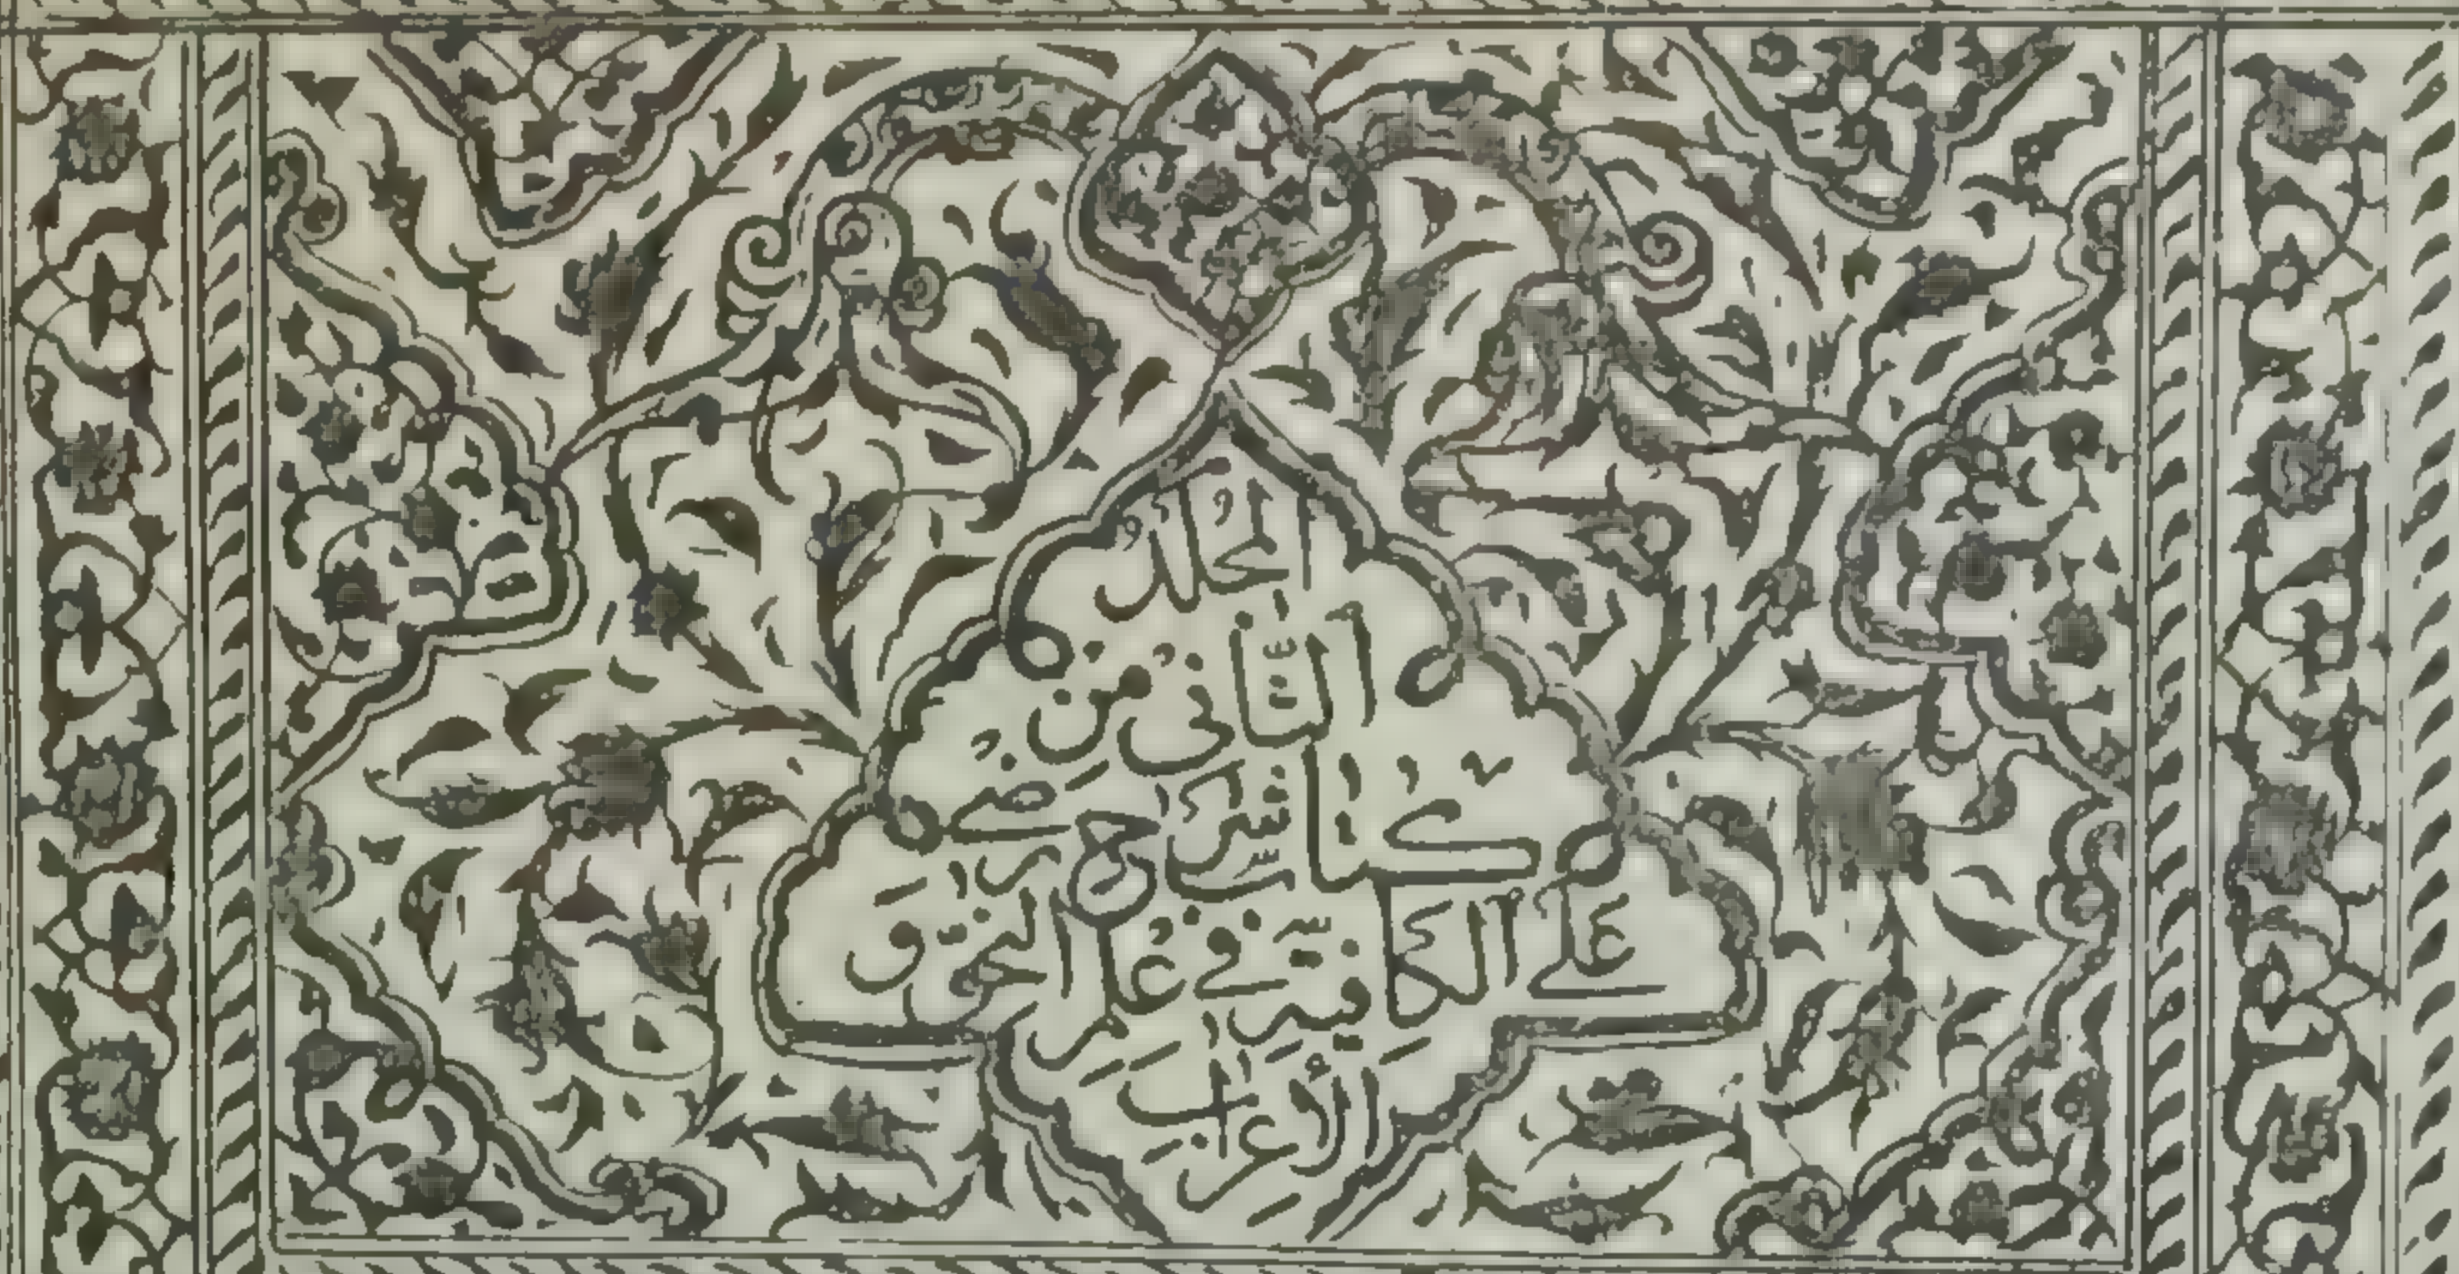 الْمُجَلَّدُ
الثَّانِي مِنْ
كِتَابِ شَرْحِ رَضِيّ
عَلَى الْكَافِيَةِ فِي عِلْمِ النَّحْوِ وَ
الْأَعَرَابِ